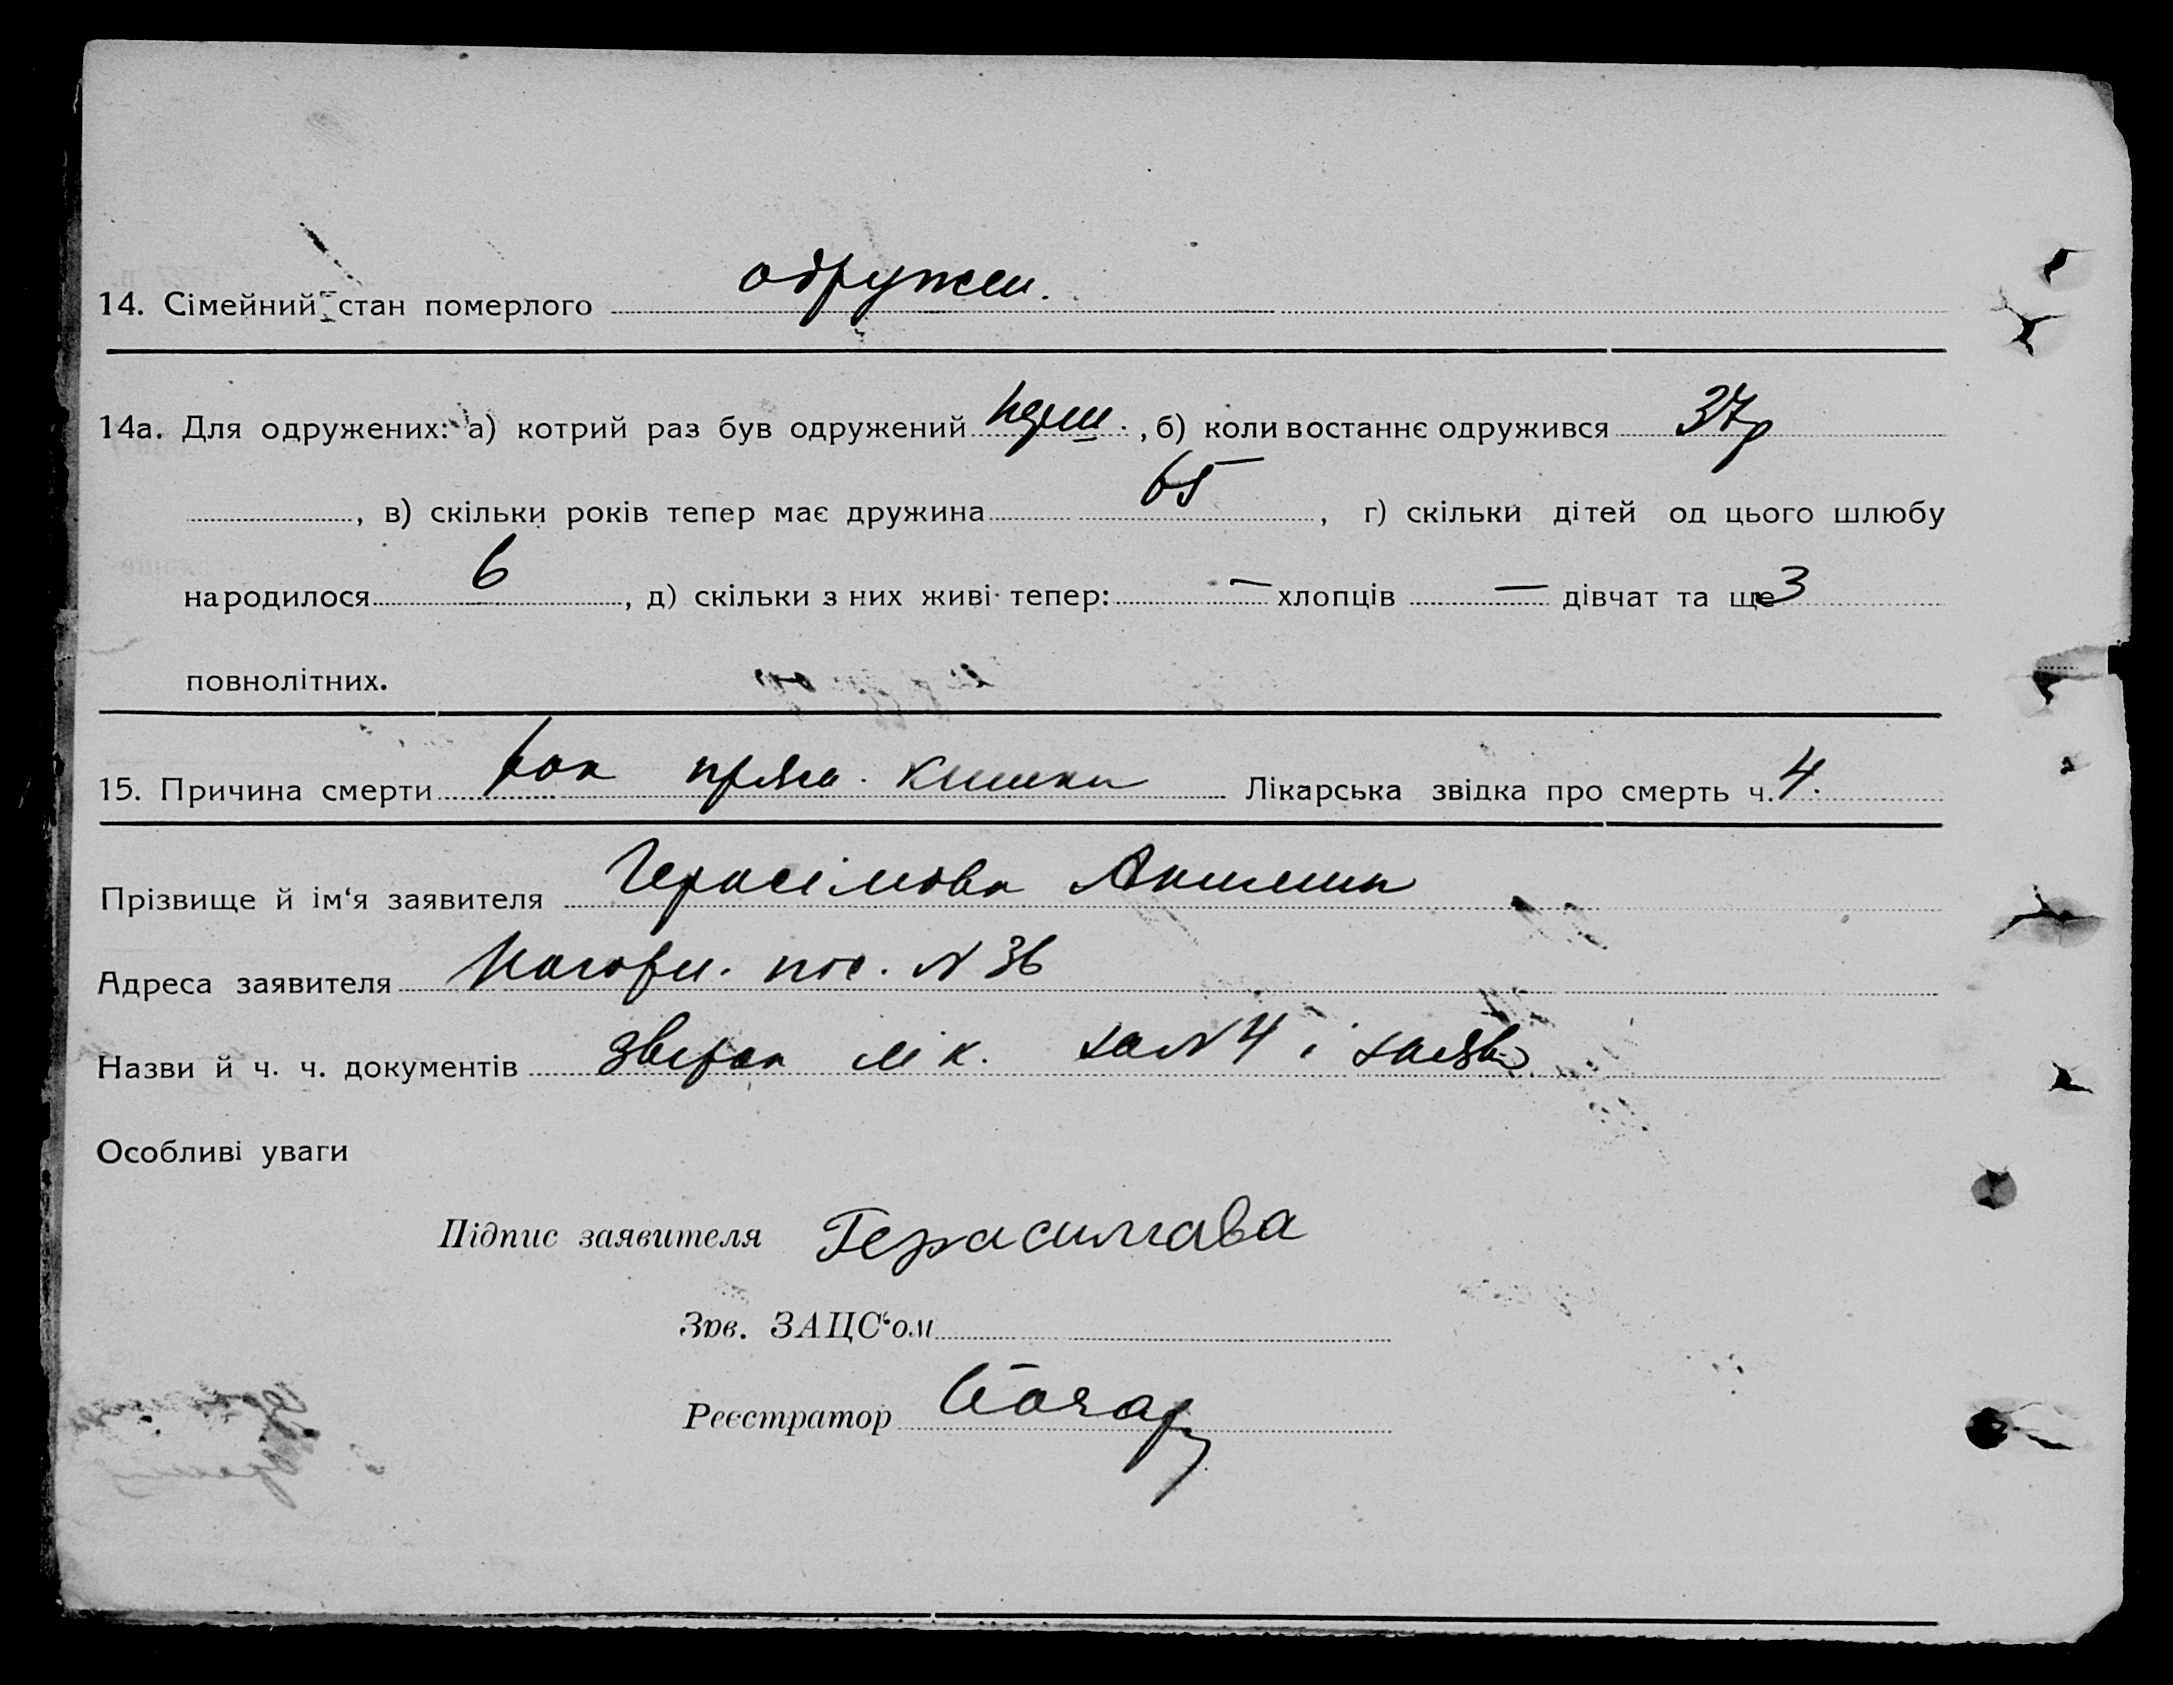 14. Сімейний стан померлого одружен.
14а. Для одружених: а) котрий раз був одружений перш., б) коли востаннє одружився 37р
, в) скільки років тепер має дружина 65, г) скільки дітей од цього шлюбу
народилося 6, д) скільки з них живі тепер: — хлопців — дівчат та ще 3
повнолітних.
15. Причина смерти рак прямо. кишки Лікарська звідка про смерть ч. 4.
Прізвище й ім‘я заявителя Герасімова
Адреса заявителя Нагорн. пос. N 36
Назви й ч. ч. документів лік. за N 4 і заява
Особливі уваги
Підпис заявителя Герасимова
Зав. ЗАЦС‘ом
Реєстратор